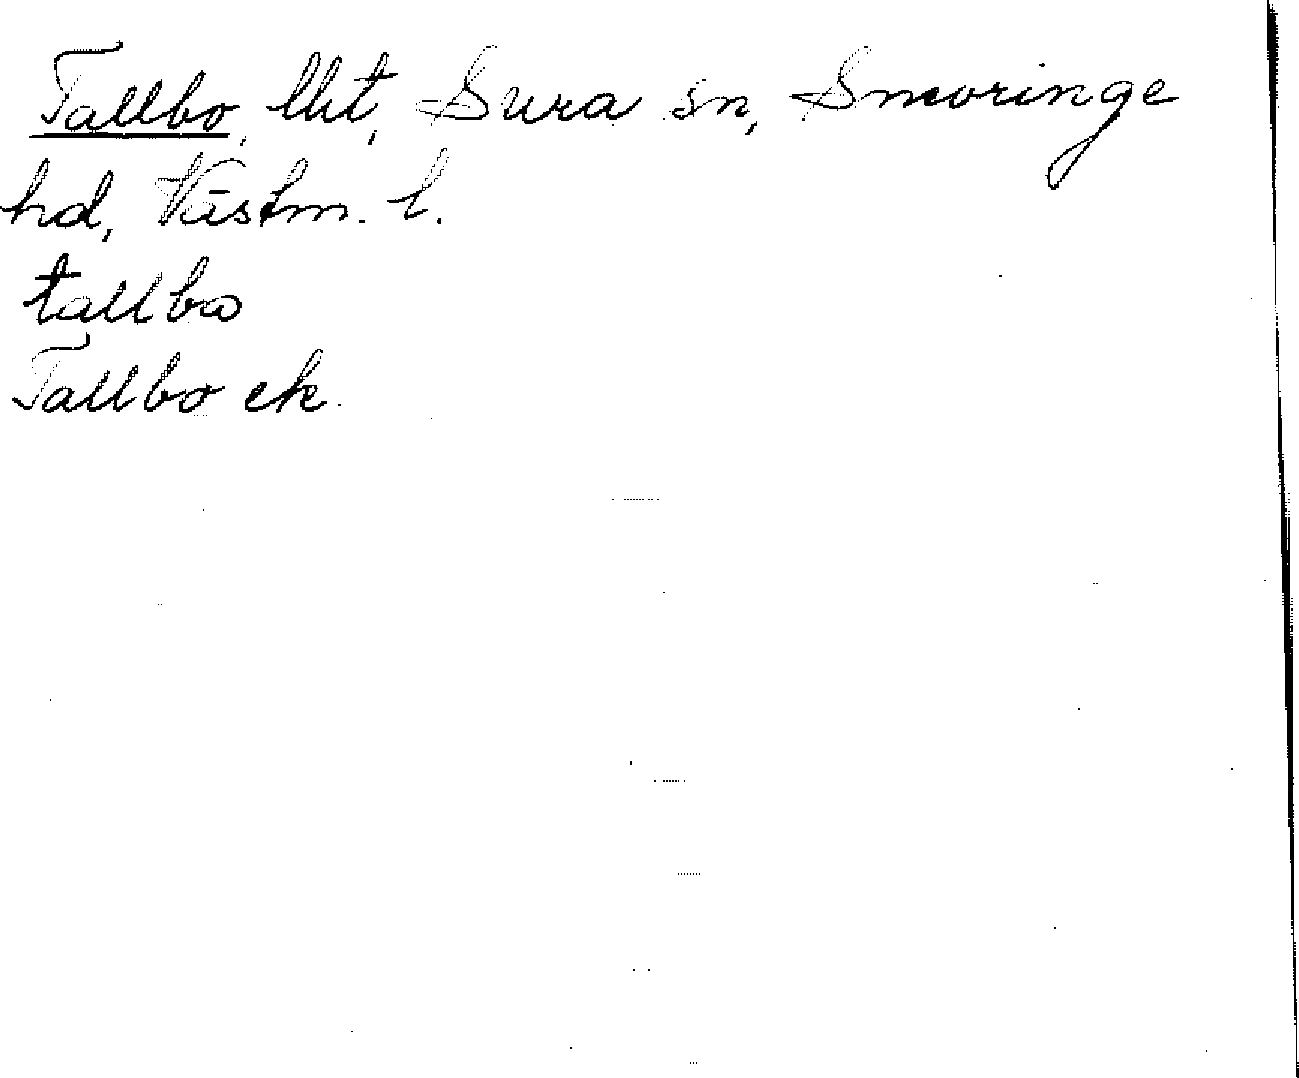 Tallbo, lht, Sura sn, Snevringe
hd, Västm. l.
tallbo
Tallbo ek.